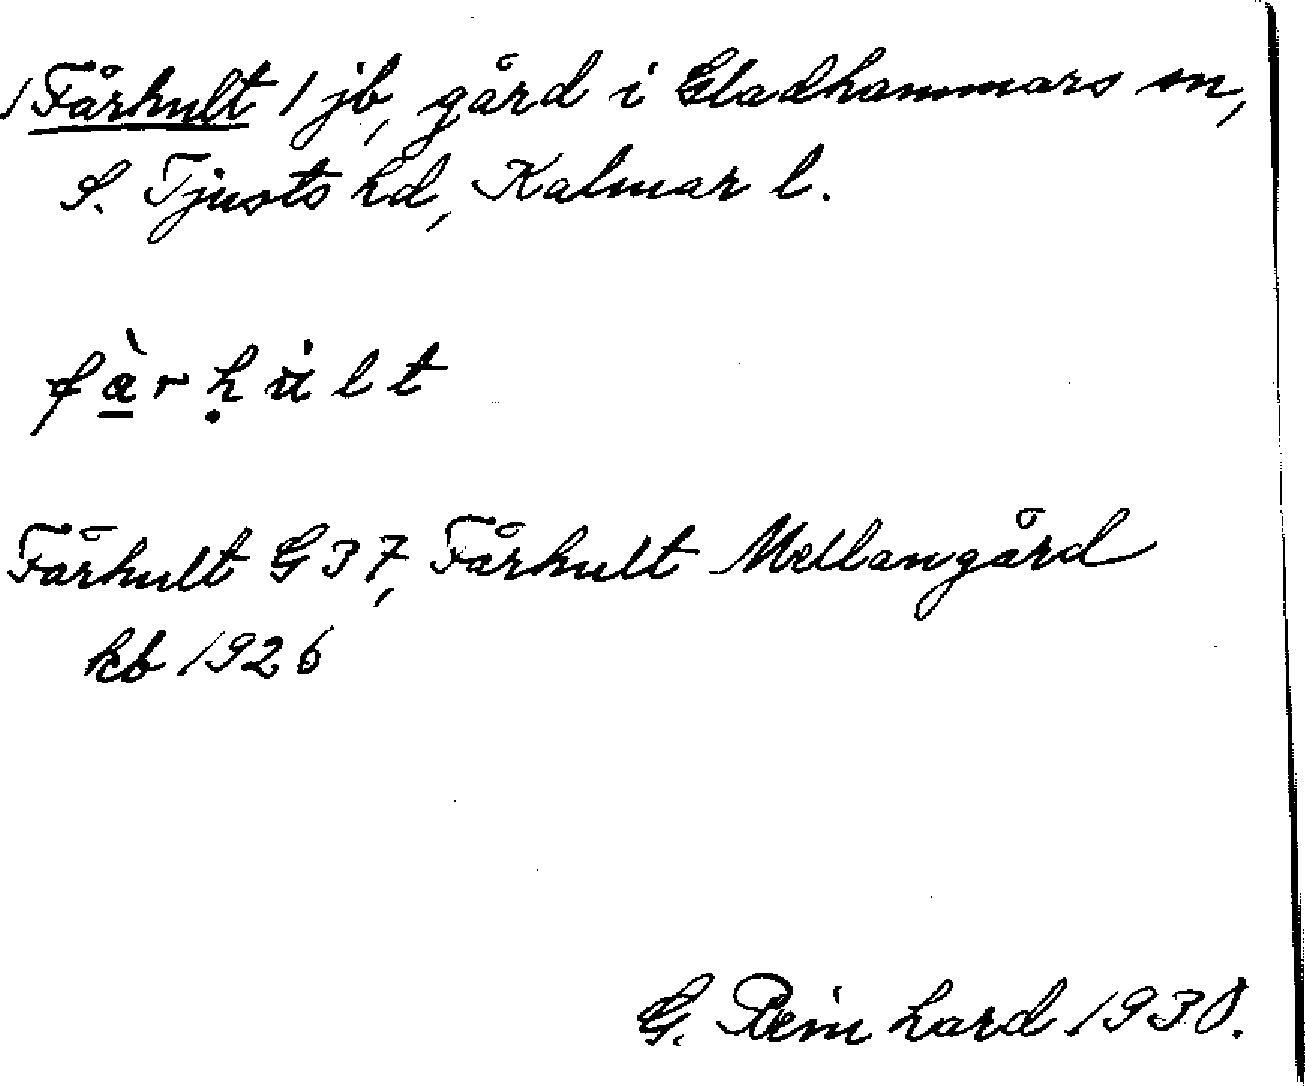 /Fårhult/ jb, gård i Gladhammars sn,
S. Tjusts hd, Kalmar l.
fàrhu̇lt
Fårhult G 37, Fårhult Mellangård
kb 1926
G. Reinhard 1930.